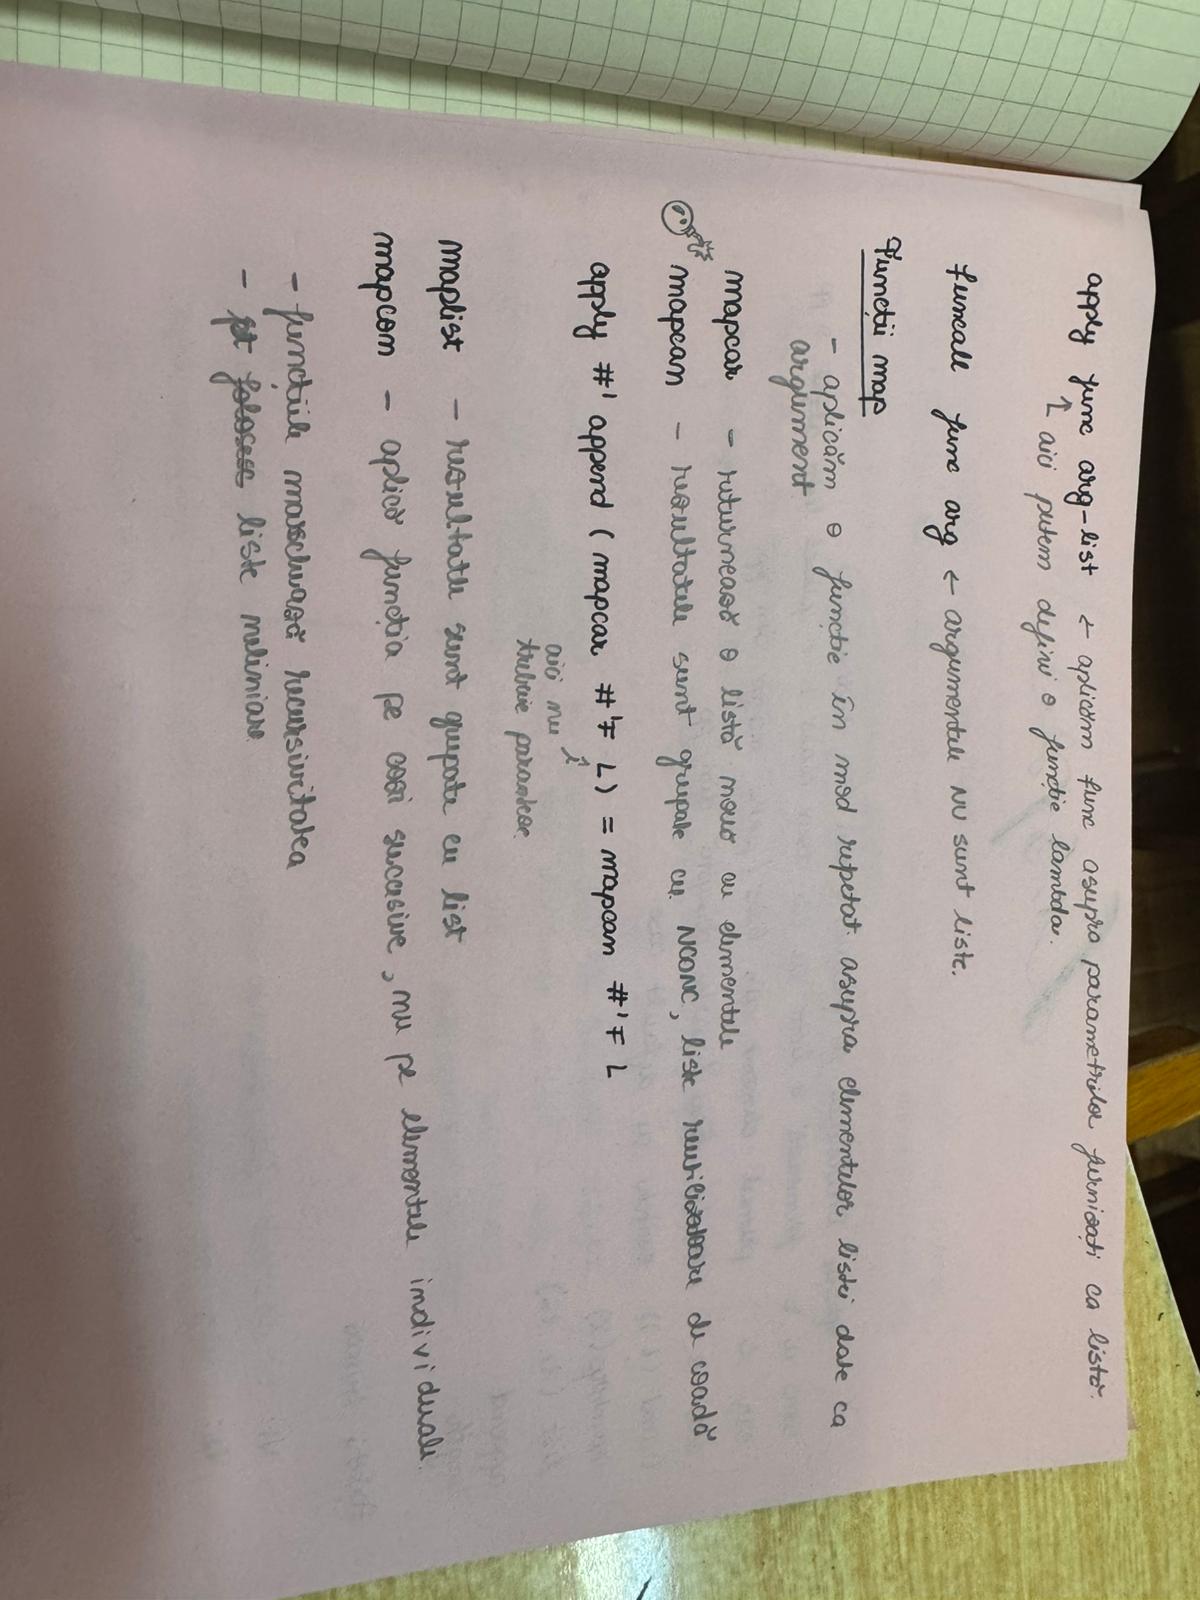 apply func arg-list ← aplicăm func asupra parametrilor furnizați ca listă.
↑ aici putem defini o funcție lambda.
funcall func arg ← argumentele NU sunt liste.
Funcții map
- aplicăm o funcție în mod repetat asupra elementelor listei date ca
argument
mapcar - returnează o listă nouă cu elementele
mapcan - rezultatele sunt grupate cu NCONC, liste reutilizatoare de coadă
apply #' append ( mapcar #'F L) = mapcan #'F L
aici nu
trebuie paranteze
maplist - rezultatele sunt grupate cu list
mapcon - aplică funcția pe cozi succesive, nu pe elementele individuale.
- funcțiile maschează recursivitatea
- pt folosesc liste neliniare